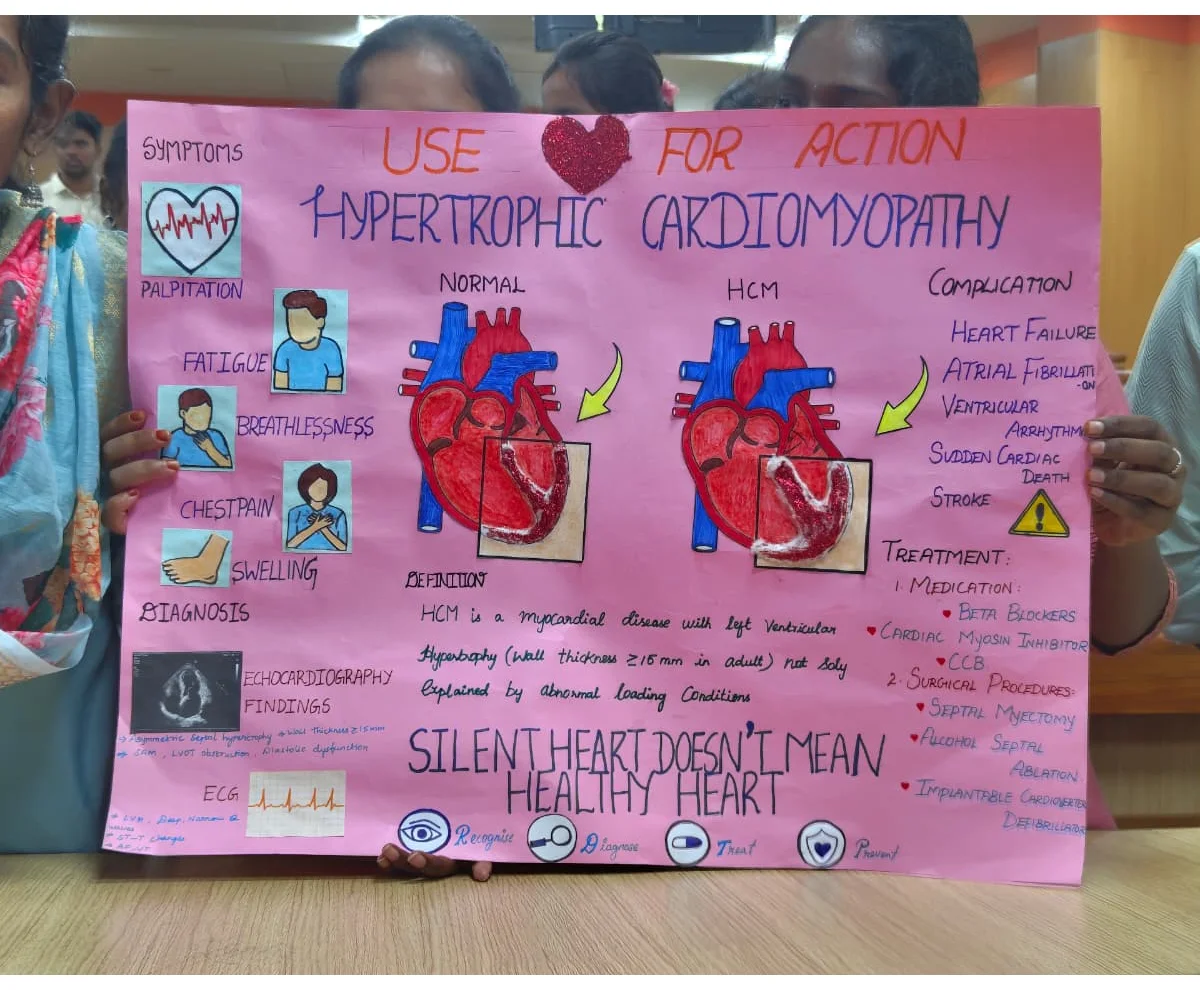 USE FOR ACTION
HYPERTROPHIC CARDIOMYOPATHY
SYMPTOMS
PALPITATION
FATIGUE
BREATHLESSNESS
CHESTPAIN
SWELLING
DIAGNOSIS
ECHOCARDIOGRAPHY
FINDINGS
→ Asymmetric Septal hypertrophy → Wall Thickness ≥ 15 mm
→ SAM, LVOT obstruction, Diastolic dysfunction
ECG
→ LVH, Deep, Narrow Q
waves
→ ST-T changes
→ AF, VT
NORMAL
HCM
DEFINITION
HCM is a myocardial disease with left Ventricular
Hypertrophy (Wall thickness ≥ 15 mm in adult) not Soly
Explained by abnormal loading Conditions
SILENT HEART DOESN'T MEAN
HEALTHY HEART
Recognise Diagnose Treat Prevent
COMPLICATION
HEART FAILURE
ATRIAL FIBRILLATI
-ON
VENTRICULAR
ARRHYTHM
SUDDEN CARDIAC
DEATH
STROKE
!
TREATMENT:
1. MEDICATION:
BETA BLOCKERS
CARDIAC MYOSIN INHIBITOR
CCB
2. SURGICAL PROCEDURES:
SEPTAL MYECTOMY
ALCOHOL SEPTAL
ABLATION
IMPLANTABLE CARDIOVERTER
DEFIBRILLATOR